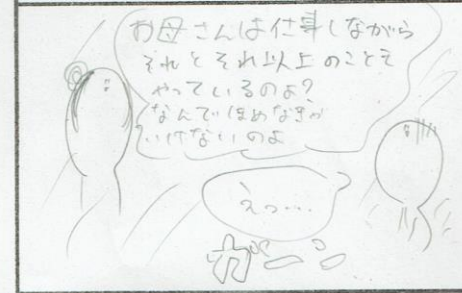 お母さんは仕事しながら
それとそれ以上のことを
やっているのよ?
なんでほめなきゃ
いけないのよ
えっ…
ガーン